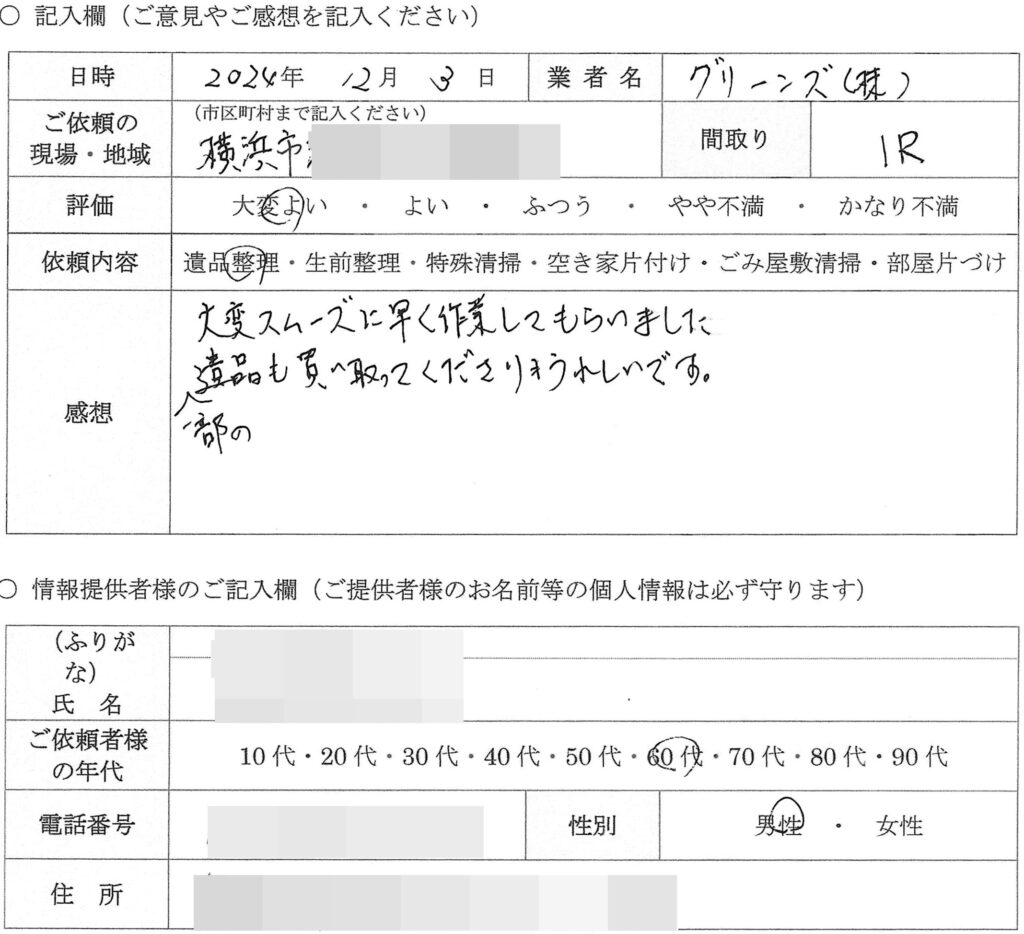 ○ 記入欄（ご意見やご感想を記入ください）
日時 2024年 12月 3日 業者名 グリーンズ(株)
ご依頼の現場・地域 （市区町村まで記入ください） 横浜市 間取り 1R
評価 大変よい ・ よい ・ ふつう ・ やや不満 ・ かなり不満
依頼内容 遺品整理・生前整理・特殊清掃・空き家片付け・ごみ屋敷清掃・部屋片づけ
感想
大変スムーズに早く作業してもらいました
遺品も買い取ってくださりうれしいです。
一部の
○ 情報提供者様のご記入欄（ご提供者様のお名前等の個人情報は必ず守ります）
（ふりがな）
氏 名
ご依頼者様の年代 10代・20代・30代・40代・50代・60代・70代・80代・90代
電話番号 性別 男性 ・ 女性
住 所